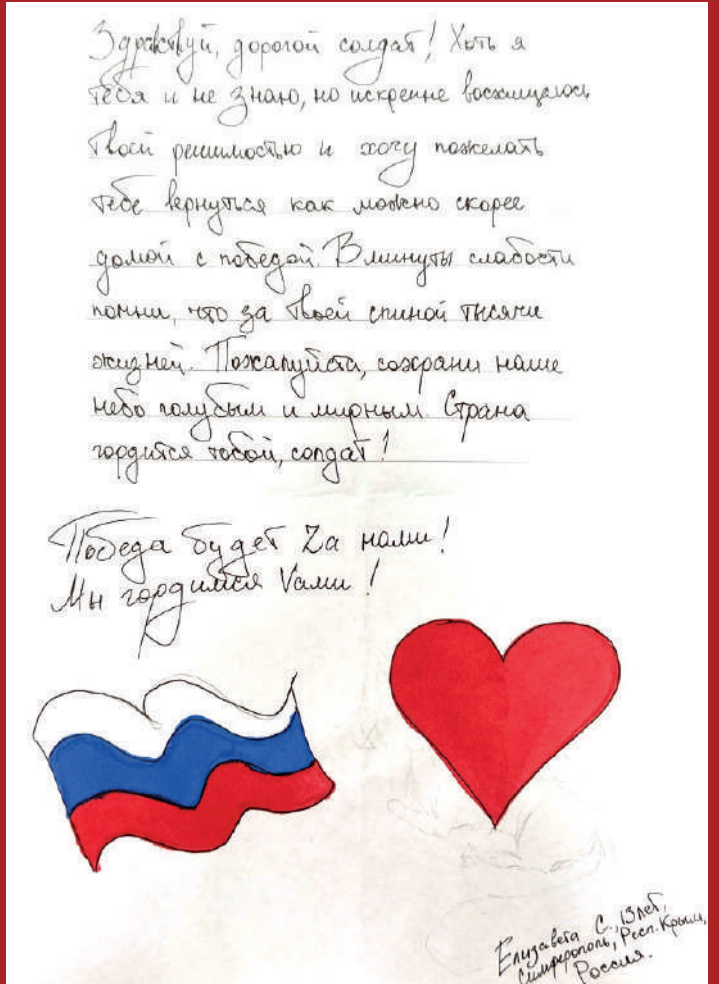 Здравствуй, дорогой солдат! Хоть я
тебя и не знаю, но искренне восхищаюсь
твоей решимостью и хочу пожелать
тебе вернуться как можно скорее
домой с победой. В минуты слабости
помни, что за твоей спиной тысячи
жизней. Пожалуйста, сохрани наше
небо голубым и мирным. Страна
гордится тобой, солдат!
Победа будет Zа нами!
Мы гордимся Vами!
Елизавета С., 13 лет,
Симферополь, Респ. Крым,
Россия.